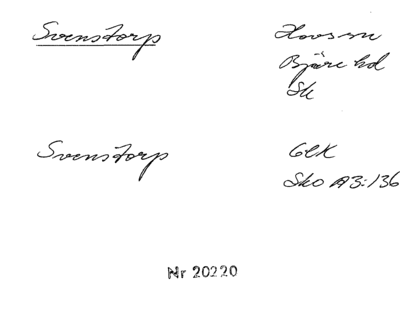 Svenstorp
Hovs sn
Bjäre hd
Sk
Svenstorp
GEK
Sko A3:136
Nr 20220